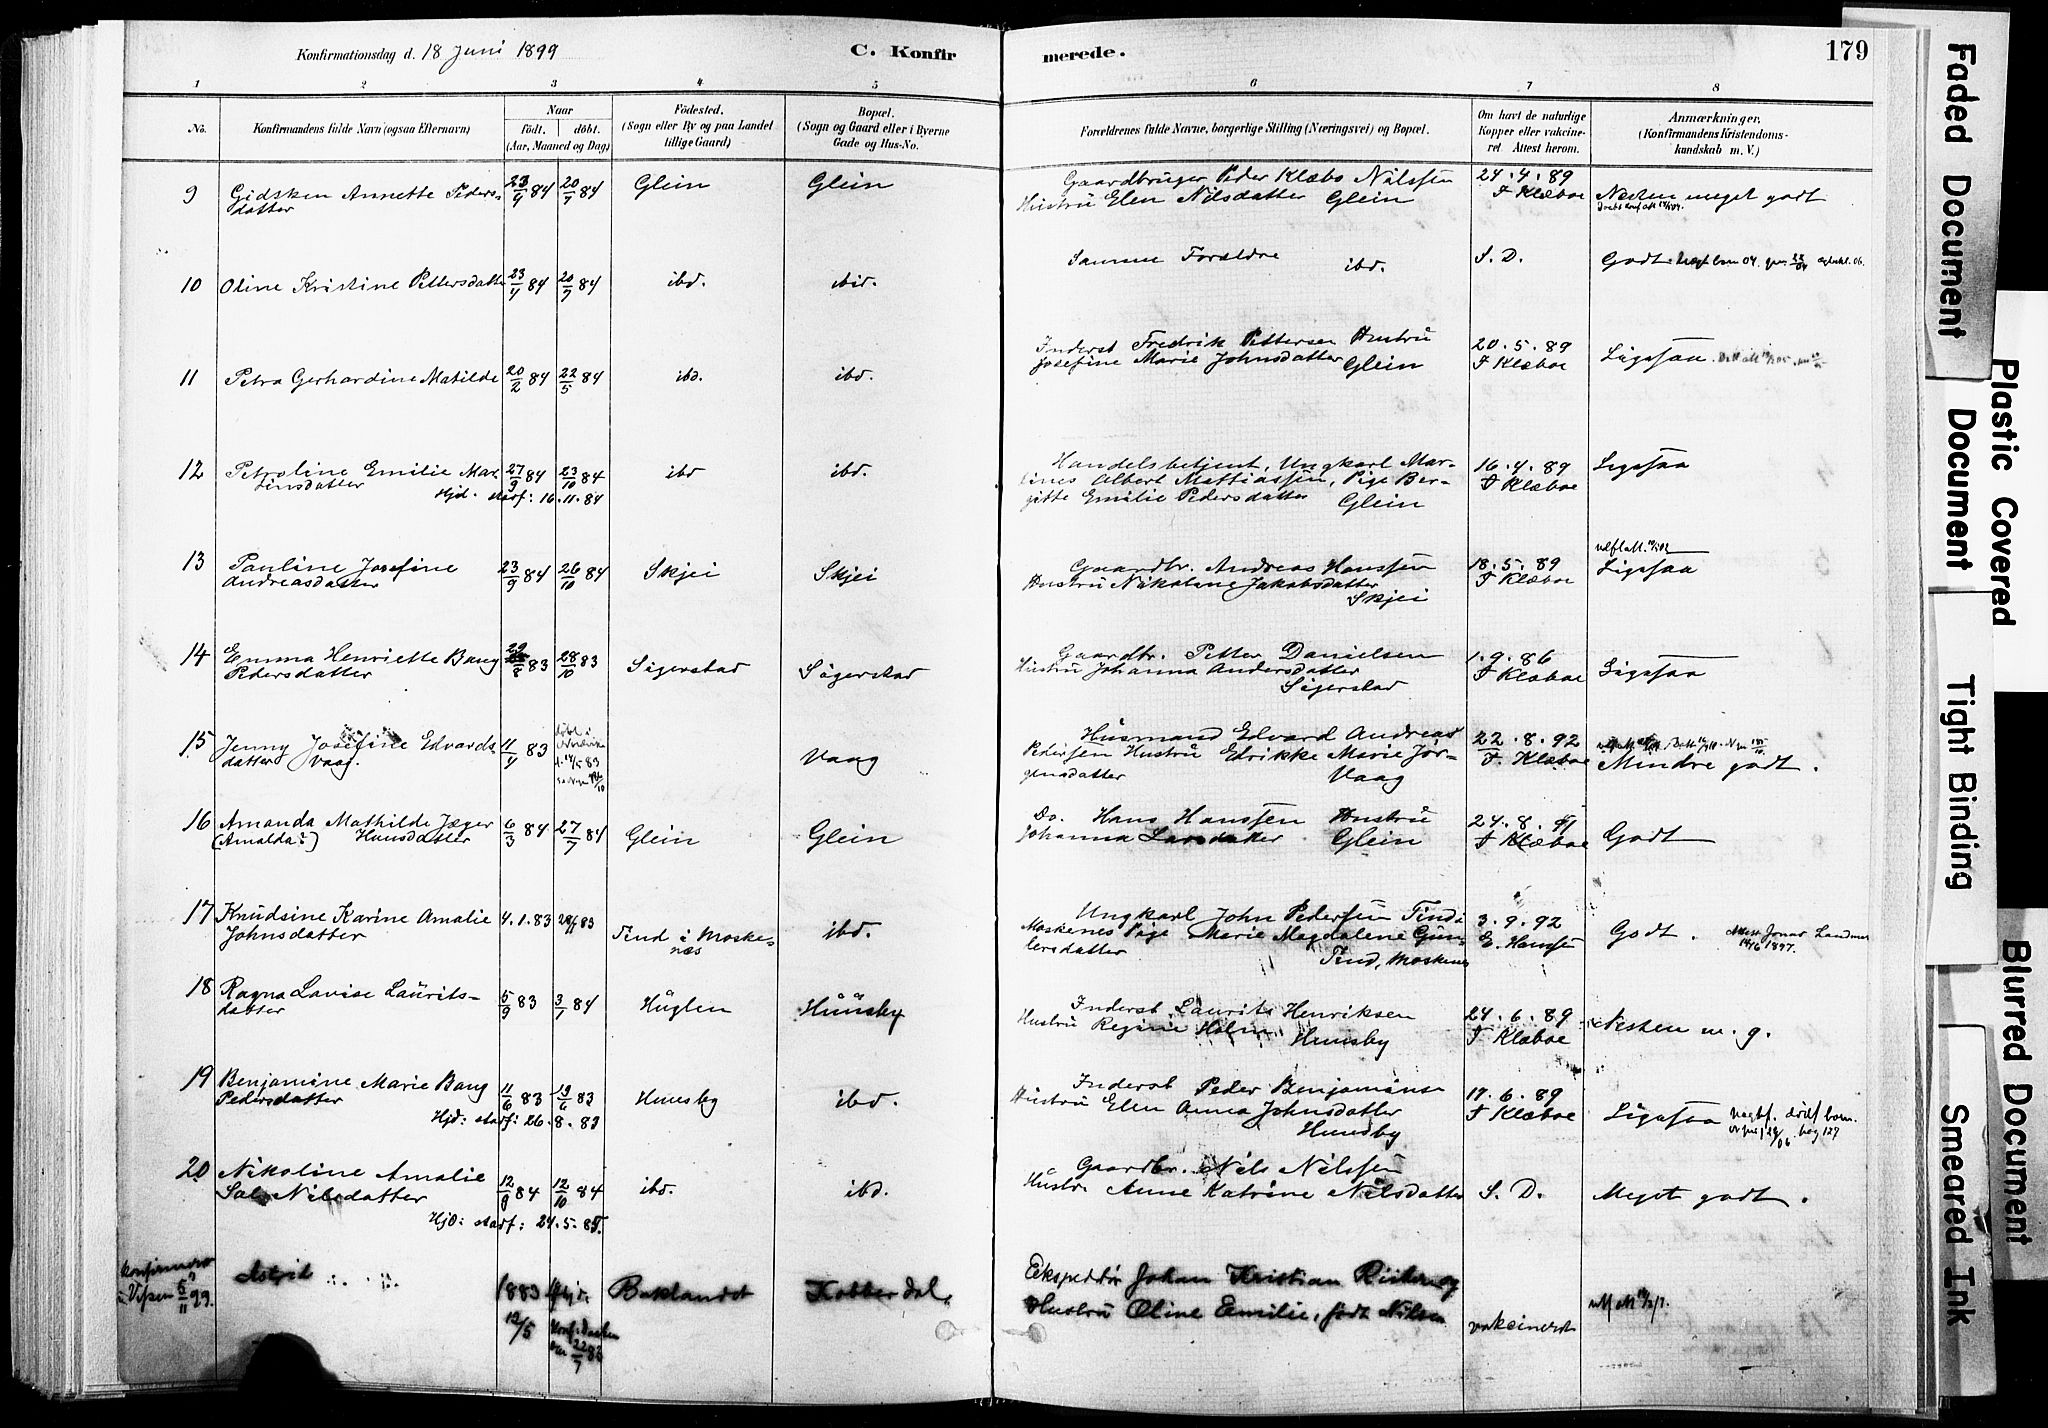 Konfirmationsdag d. 18 Juni 1899
C. Konfirmerede.
179
1 2 3 4 5 6 7 8
No.
Konfirmandens fulde Navn (ogsaa Efternavn)
Naar
født. døbt.
(Aar, Maaned og Dag)
Fødested.
(Sogn eller By og paa Landet
tillige Gaard)
Bopæl.
(Sogn og Gaard eller i Byerne
Gade og Hus-No.
Forældrenes fulde Navne, borgerlige Stilling (Næringsvei) og Bopæl.
Om havt de naturlige
Kopper eller vakcine-
ret Attest herom.
Anmærkninger.
(Konfirmandens Kristendoms-
kundskab m. V.)
9 Gidsken Annette Peders-
datter
23/4 84 20/7 84 Glein Glein
Gaardbruger Peder Klæbo Nilssen
Hustru Elen Nilsdatter Glein
24.4.89
F Klæboe
Næsten meget godt
10 Oline Kristine Pettersdatter 23/4 84 20/7 84 ibd. ibid.
Samme Forældre ibd.
S. D.
Godt
11 Petra Gerhardine Matilde 20/2 84 22/5 84 ibd. ibd.
Inderst Fredrik Pettersen Hustru
Josefine Marie Johnsdatter Glein
20.5.89
F Klæboe
Ligesaa
12 Petroline Emilie Mar-
tinsdatter
27/9 84 23/10 84 ibd ibd.
Hjd. starf: 16.11.84
Handelsbetjent, Ungkarl Mar-
tines Albert Mattiassen, Pige Ber-
gitte Emilie Pedersdatter Glein
16.4.89
F Klæboe
Ligesaa
13 Pauline Josefine
Andreasdatter
23/9 84 26/10 84 Skjei Skjei
Gaardbr. Andreas Hanssen
Hustru Nikoline Jakobsdatter
Skjei
18.5.89
F Klæboe
Ligesaa
14 Emma Henriette Bang
Pedersdatter
29/8 83 28/10 83 Sigerstad Sigerstad
Gaardbr. Petter Danielsen
Hustru Johanna Andersdatter
Sigerstad
1.9.86
F Klæboe
Ligesaa
15 Jenny Josefine Edvards-
datter Vaag.
11/4 83
Vaag
Husmand Edvard Andreas
Pedersen Hustru Edrikke Marie Jør-
gensdatter Vaag
22.8.92
F. Klæboe
Mindre godt.
16 Amanda Mathilde Jæger
(Amalda?) Hansdatter
6/3 84 27/7 84 Glein Glein
Do. Hans Hanssen Hustru
Johanna Larsdatter Glein
24.8.91
F Klæboe
Godt
17 Knudsine Karine Amalie
Johnsdatter
4.1.83 Tind i Moske-
næs
ibd.
Ungkarl John Pedersen Tind i
Moskenes Pige Marie Magdalene Gun-
lersdatter Tind, Moskenes
3.9.92
E. Hansen
Godt. Attest Jonas Landmu
14/6 1897.
18 Ragna Lovise Laurits-
datter
5/9 83 3/1 84 Huglen Huusby
Inderst Laurits Henriksen
Hustru Regine Holm Huusby
24.6.89
F Klæboe
Nesten m. g.
19 Benjamine Marie Bang
Pedersdatter
11/6 83 83 Huusby ibd.
Hjd: starf: 26.8.83
Inderst Peder Benjamins
Hustru Elen Anna Johnsdatter
Huusby
17.6.89
F Klæboe
Ligesaa
20 Nikoline Amalie
Nilsdatter
12/8 84 12/10 84 ibd. ibd.
Hjd: starf: 24.5.85.
Gaardbr. Nils Nilssen
Hustru Anne Katrine Nilsdatter
S. D.
Meget godt.
Konfirmeret
i Vefsen 5/11 99.
Astrid
1883 12/5
Baklandet Kobberdal
Ekspeditør Johan Kristian Riiber og
Hustru Oline Emilie, født Nilsen
vakcineret
Faded Document
Plastic Covered Document
Tight Binding
Blurred Document
Smeared Ink